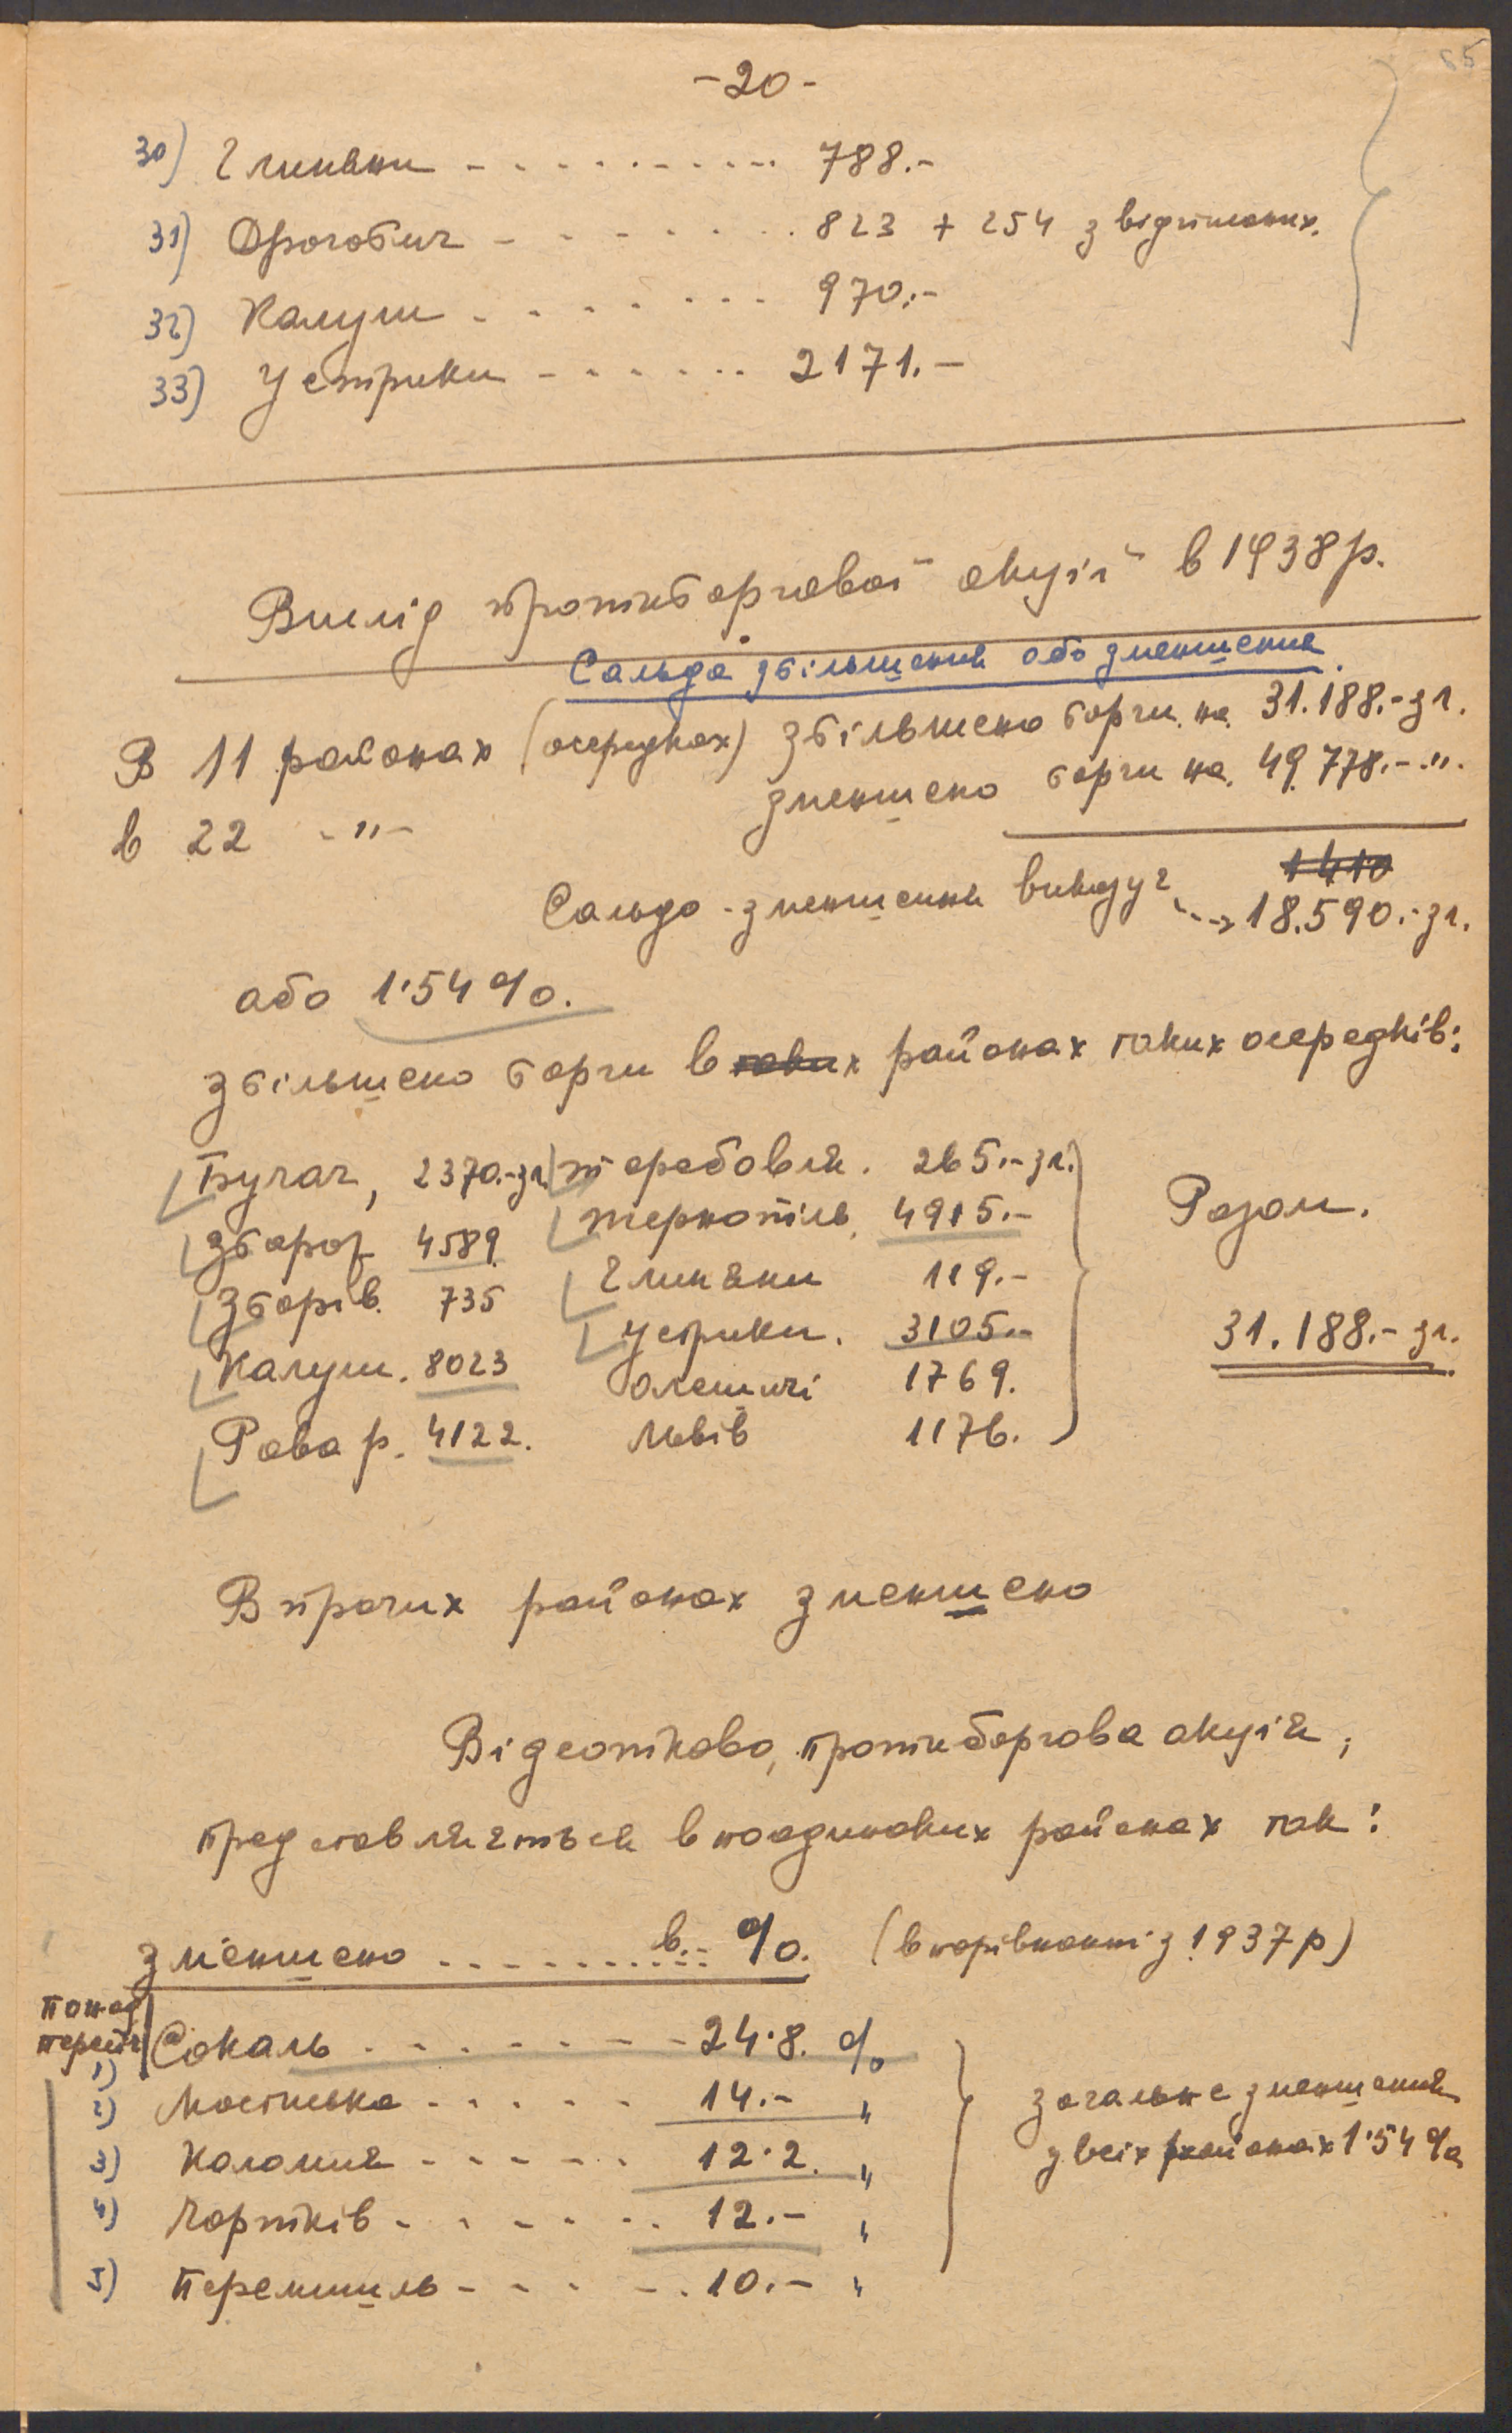 65
-20-
30) Глиняни - - - - - - - - - 788.-
31) Дрогобич - - - - - - - 823 + 254 з відтіненик.
32) Калуш - - - - - - - 970.-
33) Устрики - - - - - - 2171.-
Вислід протиборгової акції в 1938 р.
Сальдо збільшення або зменшення.
В 11 районах (осередках) збільшено борги на 31.188.- зл.
в 22 -"- зменшено борги на 49.778.- ".
1410
Сальдо - зменшення винодує ---> 18.590.- зл.
або 1'54 %.
збільшено борги в таких районах таких осередків:
Бучач, 2370.- зл. Теребовля. 265.- зл.
Збараж 4589 Тернопіль, 4915.- Разом.
Зборів. 735 Глиняни 119.-
Калуш. 8023 Устрики. 3105.- 31.188.- зл.
Рава р. 4122. Олешичі 1769.
Львів 1176.
В прочих районах зменшено
Відсотково, протиборгова акція,
представляється в поодиноких районах так:
зменшено - - - - - - - в.- %. (в порівнанні з 1937 р)
понад
1) Сокаль - - - - - - - 24.8. %
2) Мостиська - - - - - 14.- " загальне зменшення
3) Коломия - - - - - 12.2. " у всіх районах 1'54 %
4) Чортків - - - - - - 12.- "
5) Перемишль - - - - - 10.- "